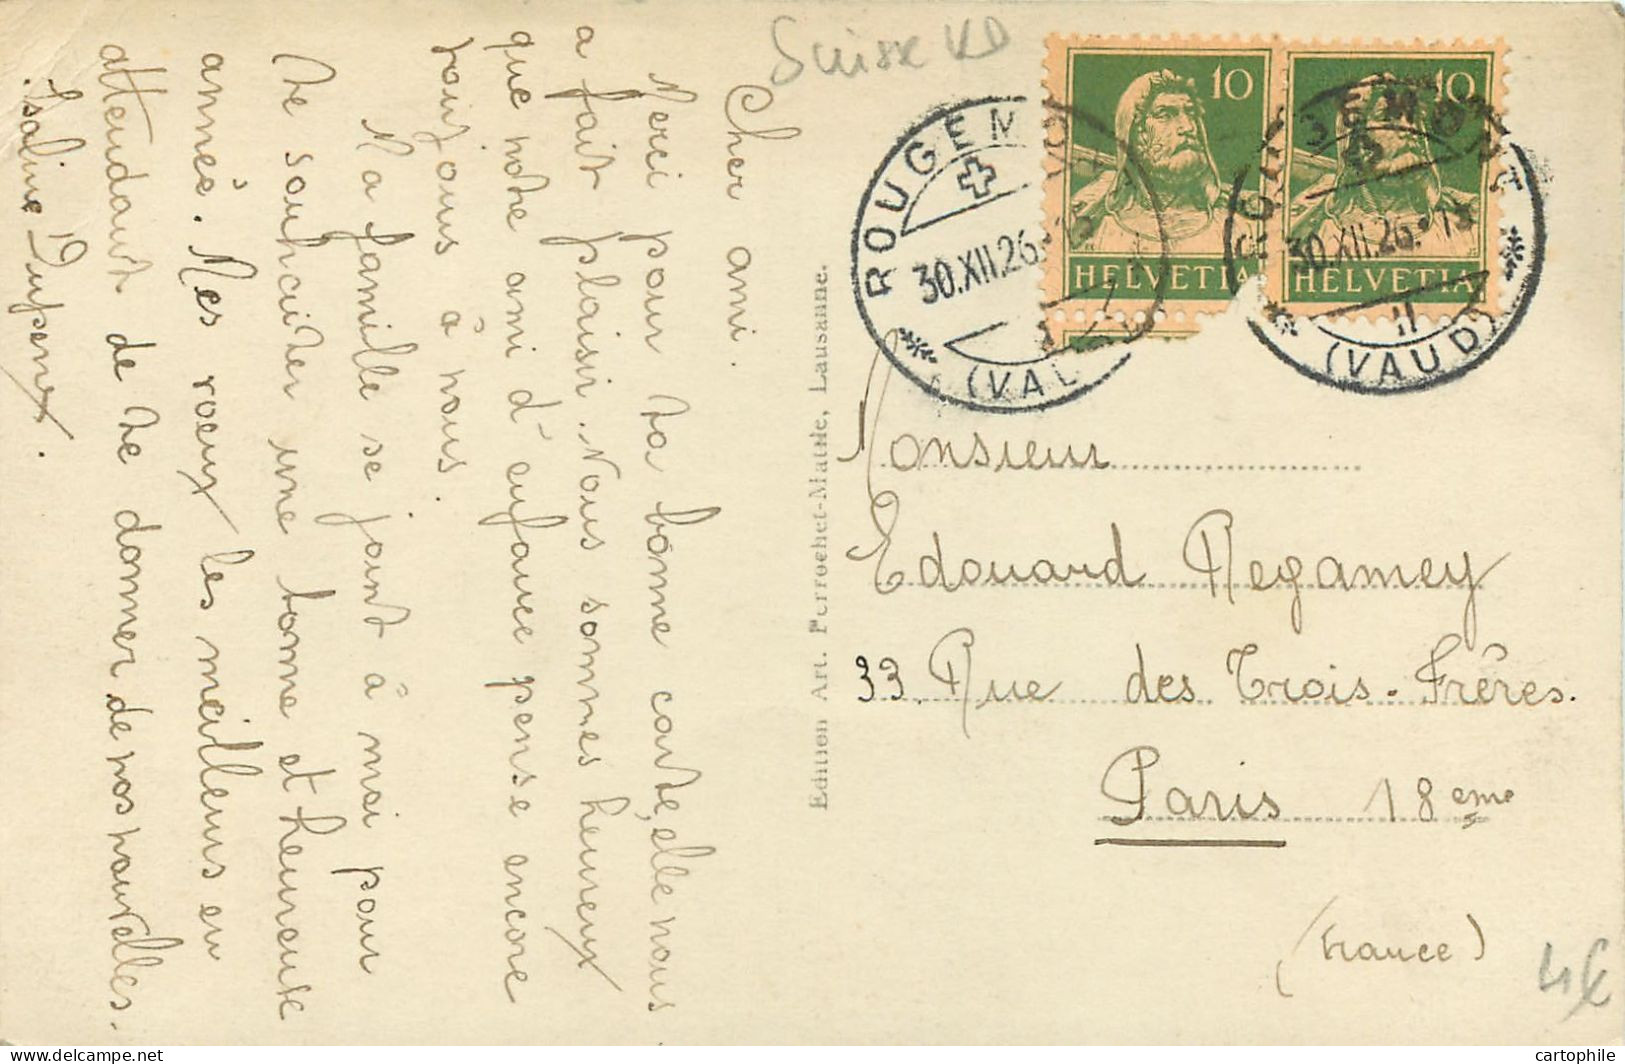 Suisse VD
Cher ami.
Merci pour ta bonne carte, elle nous
a fait plaisir. Nous sommes heureux
que notre ami d'enfance pense encore
toujours à nous.
Ma famille se joint à moi pour
te souhaiter une bonne et heureuse
année. Mes voeux les meilleurs en
attendant de te donner de nos nouvelles.
Isaline
Edition Art. Perrochet-Matile, Lausanne.
10
HELVETIA
10
HELVETIA
ROUGEMONT
30.XII.26
(VAUD)
ROUGEMONT
30.XII.26
(VAUD)
Monsieur
Edouard Regamey
33 Rue des Trois-Frères.
Paris 18eme
(France)
4€
cartophile